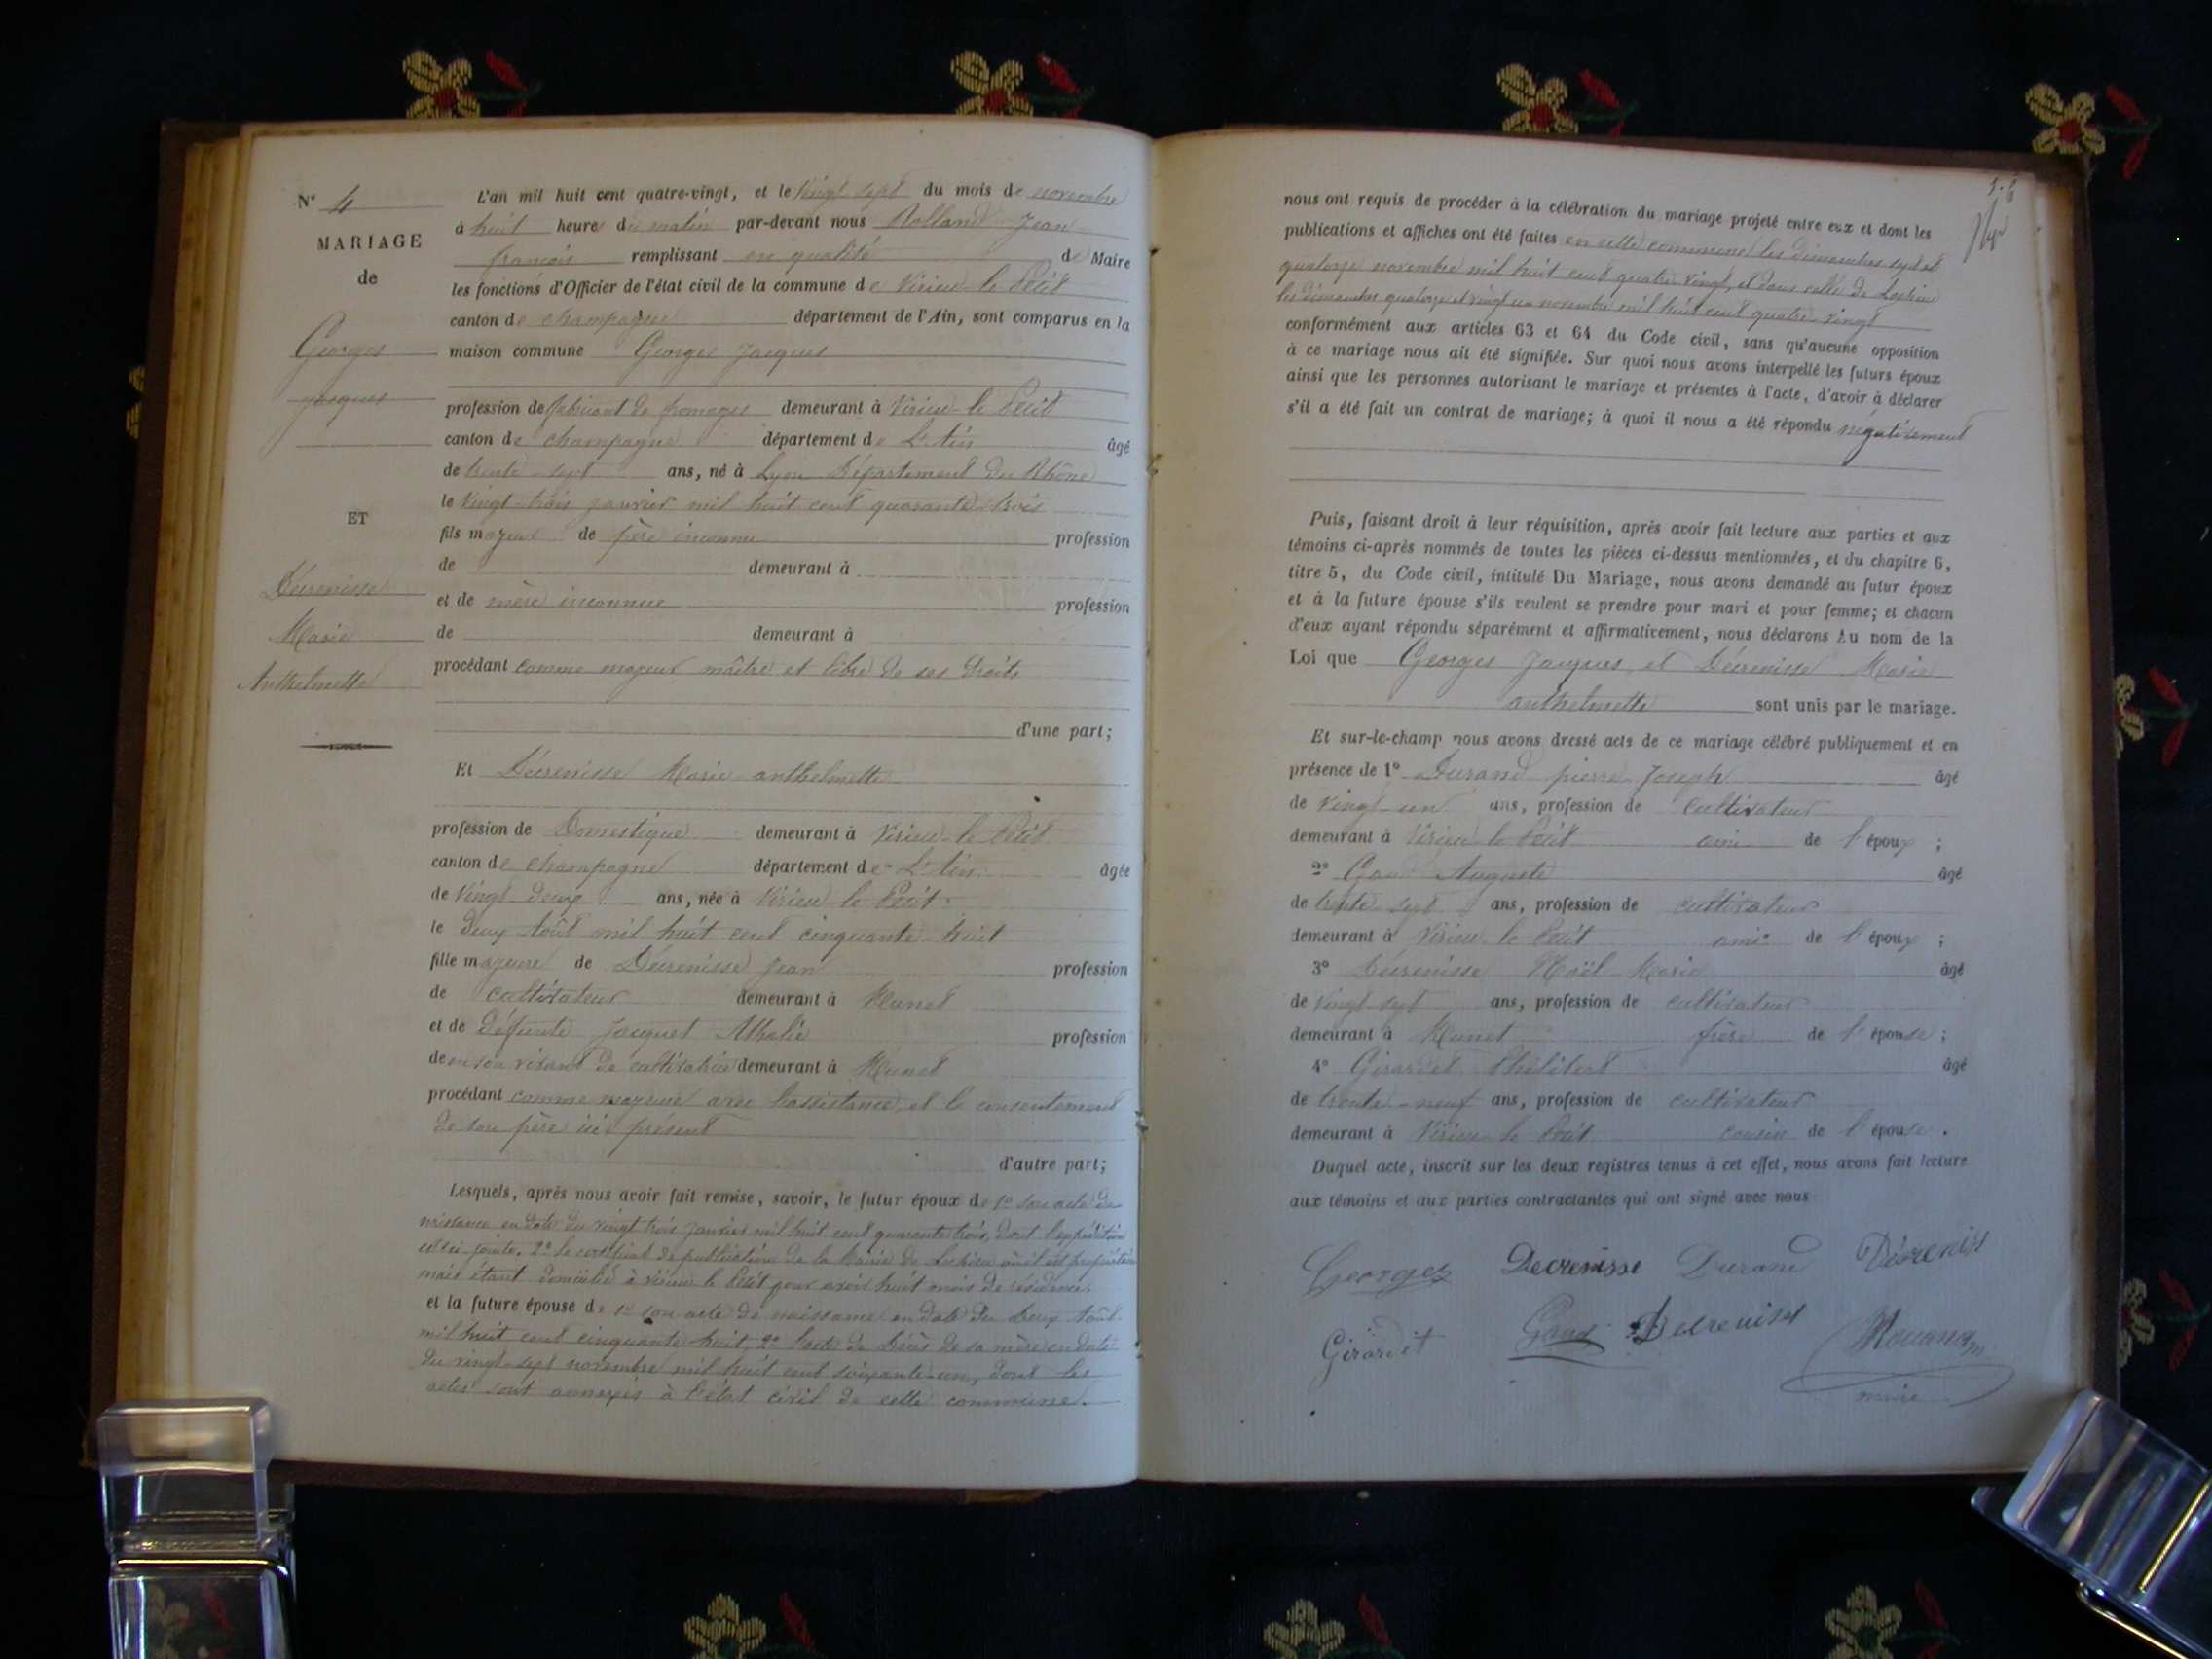 N° 4
MARIAGE
de
Georges
Jacques
ET
Décrenisse
Marie
Anthelmette
L'an mil huit cent quatre-vingt, et le vingt-sept du mois de novembre
à huit heure du matin par-devant nous Rolland Jean
françois remplissant en qualité de Maire
les fonctions d'Officier de l'état civil de la commune de Virieu-le-Petit
canton de champagne département de l'Ain, sont comparus en la
maison commune Georges Jacques
profession de fabricant de fromages demeurant à Virieu-le-Petit
canton de champagne département de L'Ain âgé
de trente-sept ans, né à Lyon Département du Rhône
le vingt-trois janvier mil huit cent quarante-trois
fils majeur de père inconnu profession
de demeurant à
et de mère inconnue profession
de demeurant à
procédant comme majeur maître et libre de ses droits
d'une part;
Et Décrenisse Marie anthelmette
profession de Domestique demeurant à Virieu-le-Petit
canton de champagne département de L'Ain âgée
de vingt-deux ans, née à Virieu-le-Petit
le deux Août mil huit cent cinquante-huit
fille majeure de Décrenisse Jean profession
de cultivateur demeurant à Munet
et de défunte Jacquet Athalie profession
de en son vivant de cultivatrice demeurant à Munet
procédant comme majeure avec l'assistance et le consentement
de son père ici présent
d'autre part;
Lesquels, après nous avoir fait remise, savoir, le futur époux de 1° son acte de
naissance en date du vingt trois janvier mil huit cent quarante trois, dont l'expédition
est ci-jointe. 2° le certificat de publication de la Mairie de où il est propriétaire
mais étant domicilié à virieu le Petit pour avoir huit mois de résidence.
et la future épouse de 1° son acte de naissance en date du deux Août
mil huit cent cinquante huit, 2° l'acte de décès de sa mère en date
du vingt-sept novembre mil huit cent soixante-un, dont les
actes sont annexés à l'état civil de cette commune.
nous ont requis de procéder à la célébration du mariage projeté entre eux et dont les
publications et affiches ont été faites en cette commune les dimanches sept et
quatorze novembre mil huit cent quatre vingt, et dans celle de
les dimanches quatorze et vingt un novembre mil huit cent quatre-vingt
conformément aux articles 63 et 64 du Code civil, sans qu'aucune opposition
à ce mariage nous ait été signifiée. Sur quoi nous avons interpellé les futurs époux
ainsi que les personnes autorisant le mariage et présentes à l'acte, d'avoir à déclarer
s'il a été fait un contrat de mariage; à quoi il nous a été répondu négativement
Puis, faisant droit à leur réquisition, après avoir fait lecture aux parties et aux
témoins ci-après nommés de toutes les pièces ci-dessus mentionnées, et du chapitre 6,
titre 5, du Code civil, intitulé Du Mariage, nous avons demandé au futur époux
et à la future épouse s'ils veulent se prendre pour mari et pour femme; et chacun
d'eux ayant répondu séparément et affirmativement, nous déclarons Au nom de la
Loi que Georges Jacques, et Décrenisse Marie
anthelmette sont unis par le mariage.
Et sur-le-champ nous avons dressé acte de ce mariage célébré publiquement et en
présence de 1° Durand pierre Joseph âgé
de vingt-un ans, profession de cultivateur
demeurant à Virieu-le-Petit ami de l'époux ;
2° Gand Auguste âgé
de trente-sept ans, profession de cultivateur
demeurant à Virieu-le-Petit ami de l'époux ;
3° Décrenisse Noël Marie âgé
de vingt-sept ans, profession de cultivateur
demeurant à Munet frère de l'épouse ;
4° Girardet Philibert âgé
de trente-neuf ans, profession de cultivateur
demeurant à Virieu-le-Petit cousin de l'épouse .
Duquel acte, inscrit sur les deux registres tenus à cet effet, nous avons fait lecture
aux témoins et aux parties contractantes qui ont signé avec nous
Georges Decrenisse Durand Décreniss
Girardet Gand Decrenisse
maire